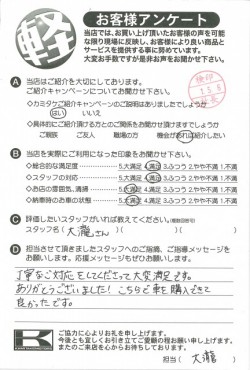 軽
お客様アンケート
当店では、お買い上げ頂いたお客様の声を可能
な限り現場に反映し、お客様により良い商品と
サービスを提供する事に努めています。
大変お手数ですが是非お声をお聞かせ下さい。
A 当店はご紹介を大切にしております。
ご紹介キャンペーンについてお聞かせ下さい。
◇カミタケご紹介キャンペーンのご説明はありましたでしょうか
はい いいえ
◇具体的にご紹介頂ける方とのご関係をお聞かせ頂けますでしょうか
ご親族 ご友人 職場の方 機会があれば紹介したい
B 当店を実際にご利用になった印象をお聞かせ下さい。
◇総合的な満足度 5.大満足 4.満足 3.ふつう 2.やや不満 1.不満
◇スタッフの対応 5.大満足 4.満足 3.ふつう 2.やや不満 1.不満
◇お店の雰囲気、清掃 5.大満足 4.満足 3.ふつう 2.やや不満 1.不満
◇納車時のお車の状態 5.大満足 4.満足 3.ふつう 2.やや不満 1.不満
C 評価したいスタッフがいれば教えてください。(複数回答可)
スタッフ名( 大瀧さん )
D 担当させて頂きましたスタッフへのご指摘、ご指導メッセージを
お願いします。応援メッセージもぜひお願い致します。
丁寧なご対応をしてくださって大変満足です。
ありがとうございました! こちらで車を購入できて
良かったです。
K
ご協力に心よりお礼を申し上げます。
今後とも宜しくお引き立てご愛顧の程お願い申し上げます。
またのご来店を心からお待ちしております。
担当( 大瀧 )